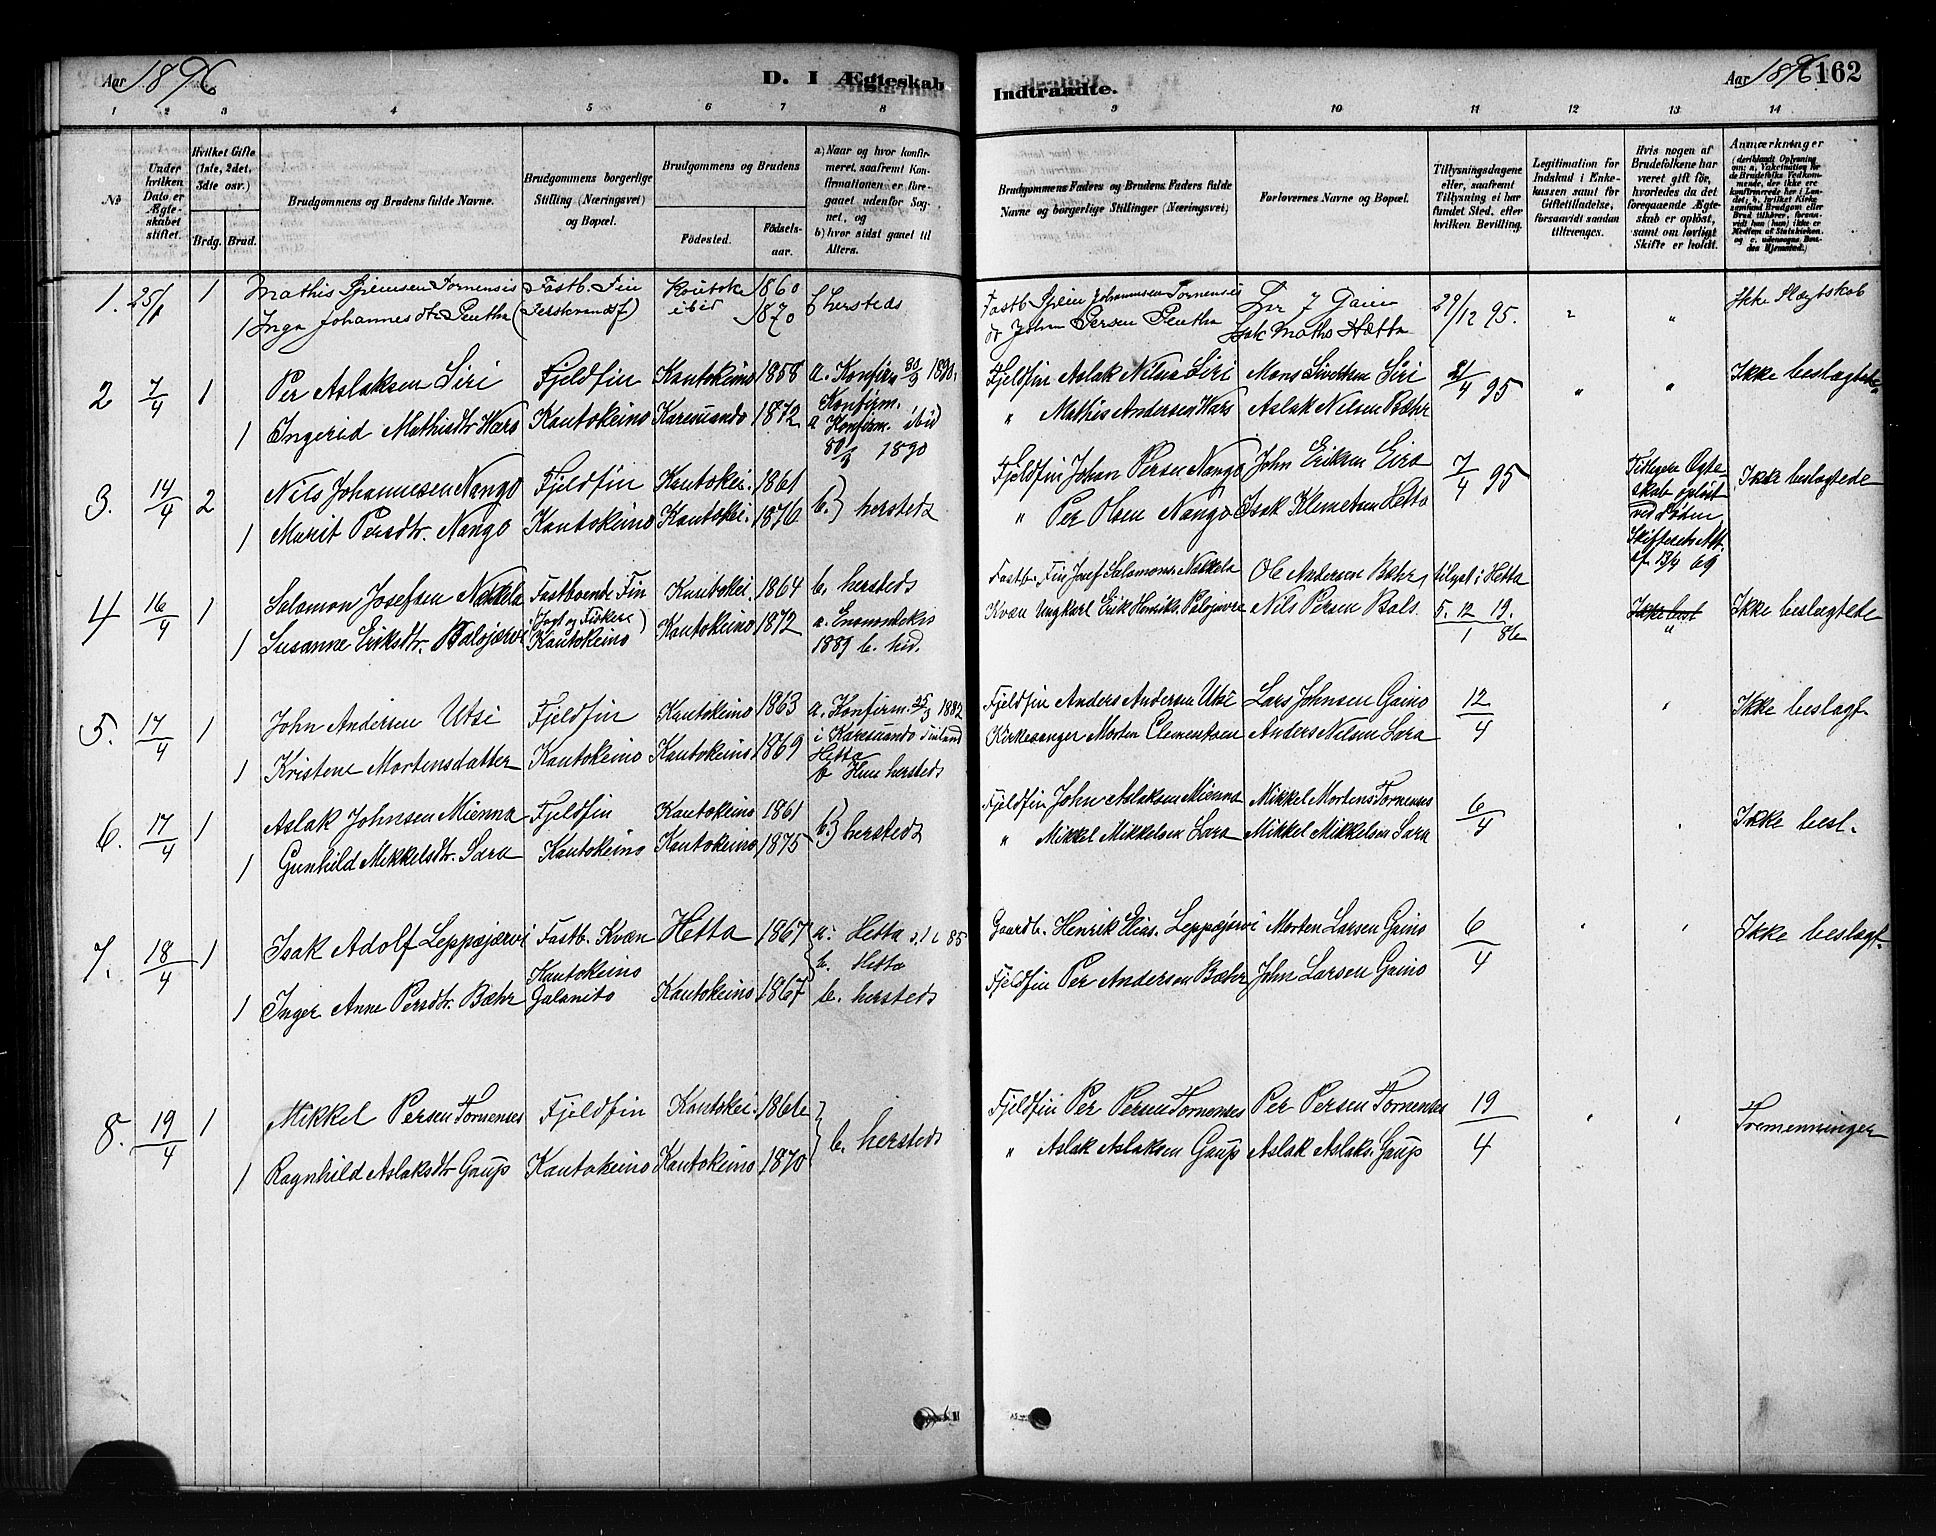 Aar 1896
D. I Ægteskab
Indtraadte.
Aar 1896 162
1 2 3 4 5 6 7 8
9 10 11 12 13 14
No
Under hvilken Dato er Ægteskabet stiftet.
Hvilket Gifte (1ste, 2det, 3die osv.)
Brdg. Brud.
Brudgommens og Brudens fulde Navne.
Brudgommens borgerlige Stilling (Næringsvei) og Bopæl.
Brudgommens og Brudens
Födested.
Födselsaar.
a) Naar og hvor konfirmeret, saafremt Konfirmationen er foregaaet udenfor Sognet, og
b) hvor sidst gaaet til Alters.
Brudgommens Faders og Brudens Faders fulde Navne og borgerlige Stillinger (Næringsvei)
Forlovernes Navne og Bopæl.
Tillysningsdagene eller, saafremt Tillysning ei har fundet Sted, efter hvilken Bevilling.
Legitimation for Indskud i Enkekassen samt for Giftetilladelse, forsaavidt saadan tiltrænges.
Hvis nogen af Brudefolkene har været gift för, hvorledes da det foregaaende Ægteskab er oplöst, samt om lovligt Skifte er holdt.
Anmærkninger
1. 25/1 1 Mathis Tornensis Fastb. Fin Koutok. 1860
1 Inga Johannesdtr. ibid 1870 b hersteds
Fastb. Johannsen Tornensis 29/12 95. " Ikke Slægtskab
John Persen Isak Maths Hætta
2 7/4 1 Per Aslaksen Siri Fjeldfin Kautokeino 1858 a. Konfirm 30/3 1890.
1 Ingerid Mathisdtr Kautokeino Karesuando 1872 Konfirm.
a Konfirm. ibid
30/3 1890
Fjeldfin Aslak Nilsen Siri Mons Siri 21/4 95 " " Ikke beslægtede
" Mathis Andersen Aslak Nilsen Bæhr
3. 14/4 2 Nils Johannesen Nango Fjeldfin Kautokei. 1861
1 Marit Persdtr. Nango Kautokeino Kautokei. 1876 b. hersteds
Fjeldfin Johan Persen Nango John Eriksen Eira 7/4 95 Ikke beslægtede
" Per Olsen Nango Isak Klemetsen Hetta
Tidligere Ægteskab oplöst ved Döden
4 16/4 1 Salomon Josefsen Nakkela Fastboende Fin Kautokei. 1864 b. hersteds
(Jagt og Fisker)
1 Susanne Eriksdtr. Palojærvi Kautokeino Kautokeino 1872 a. Enonteikis
1889 b. hid.
Fastb. Fin Josef Salomons. Nakkela Ole Andersen Bæhr tilyst i Hetta
Kvæn Ungkarl Erik Henriks. Nils Persen Bals. 5. 12 19. Ikke best " Ikke beslægtede
5. 17/4 1 John Andersen Utsi Fjeldfin Kautokeino 1863 a. Konfirm. 25/3 1882
i Karesuando Finland
1 Kristene Mortensdatter Kautokeino Kautokeino 1869 Hetta
b Hun hersteds
Fjeldfin Anders Andersen Utsi Lars Johnsen Gaino 12/4 Ikke beslægt.
Kirkesanger Morten Clementsen Anders Nilsen Sara
6. 17/4 1 Aslak Johnsen Mienna Fjeldfin Kautokeino 1861
1 Gunhild Mikkelsdtr. Sara Kautokeino Kautokeino 1875 b. hersteds
Fjeldfin John Aslaksen Mienna Mikkel Mortens Tornenses 6/4 Ikke besl.
" Mikkel Mikkelsen Sara Mikkel Mikkelsen Sara
7. 18/4 1 Isak Adolf Leppæjærvi Fastb. Kvæn Hetta 1867 a. Hetta 85
Kautokeino b. Hetta
1 Inger Anne Persdtr. Bæhr Galanito Kautokeino 1867 b. hersteds
Gaardb. Henrik Elias. Leppejærvi Morten Larsen Gaino 6/4 Ikke beslægt.
Fjeldfin Per Andersen Bæhr John Larsen Gaino
8. 19/4 1 Mikkel Persen Tornenses Fjeldfin Kautokei. 1866
1 Ragnhild Aslaksdtr Gaup Kautokeino Kautokeino 1870 b. hersteds
Fjeldfin Per Persen Tornenses Per Persen Tornenses 19/4 Tremenninger
" Aslak Aslaksen Gaup Aslak Aslaks. Gaup